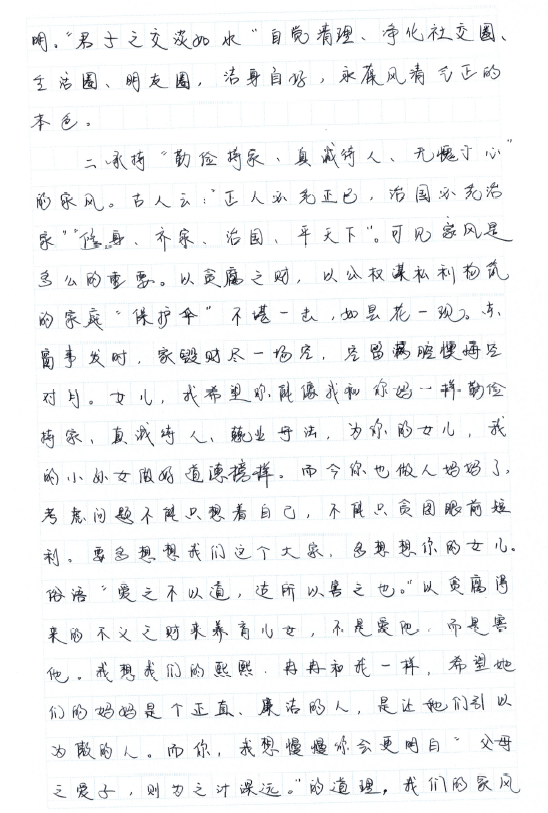 明。“君子之交淡如水”自觉清理、净化社交圈、
生活圈、朋友圈，洁身自好，永葆风清气正的
本色。
二、承持“勤俭持家、真诚待人、无愧于心”
的家风。古人云：“正人必先正己，治国必先治
家”“修身、齐家、治国、平天下”。可见家风是
多么的重要。以贪腐之财，以公权谋私利构筑
的家庭“保护伞”不堪一击，如昙花一现。东
窗事发时，家毁财尽一场空，空留满腔懊悔空
对月。女儿，我希望你能像我和你妈一样勤俭
持家、真诚待人、兢业守法，为你的女儿，我
的小孙女做好道德榜样。而今你也做人妈妈了，
考虑问题不能只想着自己，不能只贪图眼前短
利。要多想想我们这个大家，多想想你的女儿。
俗语“爱之不以道，适所以害之也。”以贪腐得
来的不义之财来养育儿女，不是爱他，而是害
他。我想我们的熙熙、冉冉和我一样，希望她
们的妈妈是个正直、廉洁的人，是让她们引以
为傲的人。而你，我想慢慢你会更明白“父母
之爱子，则为之计深远。”的道理，我们的家风